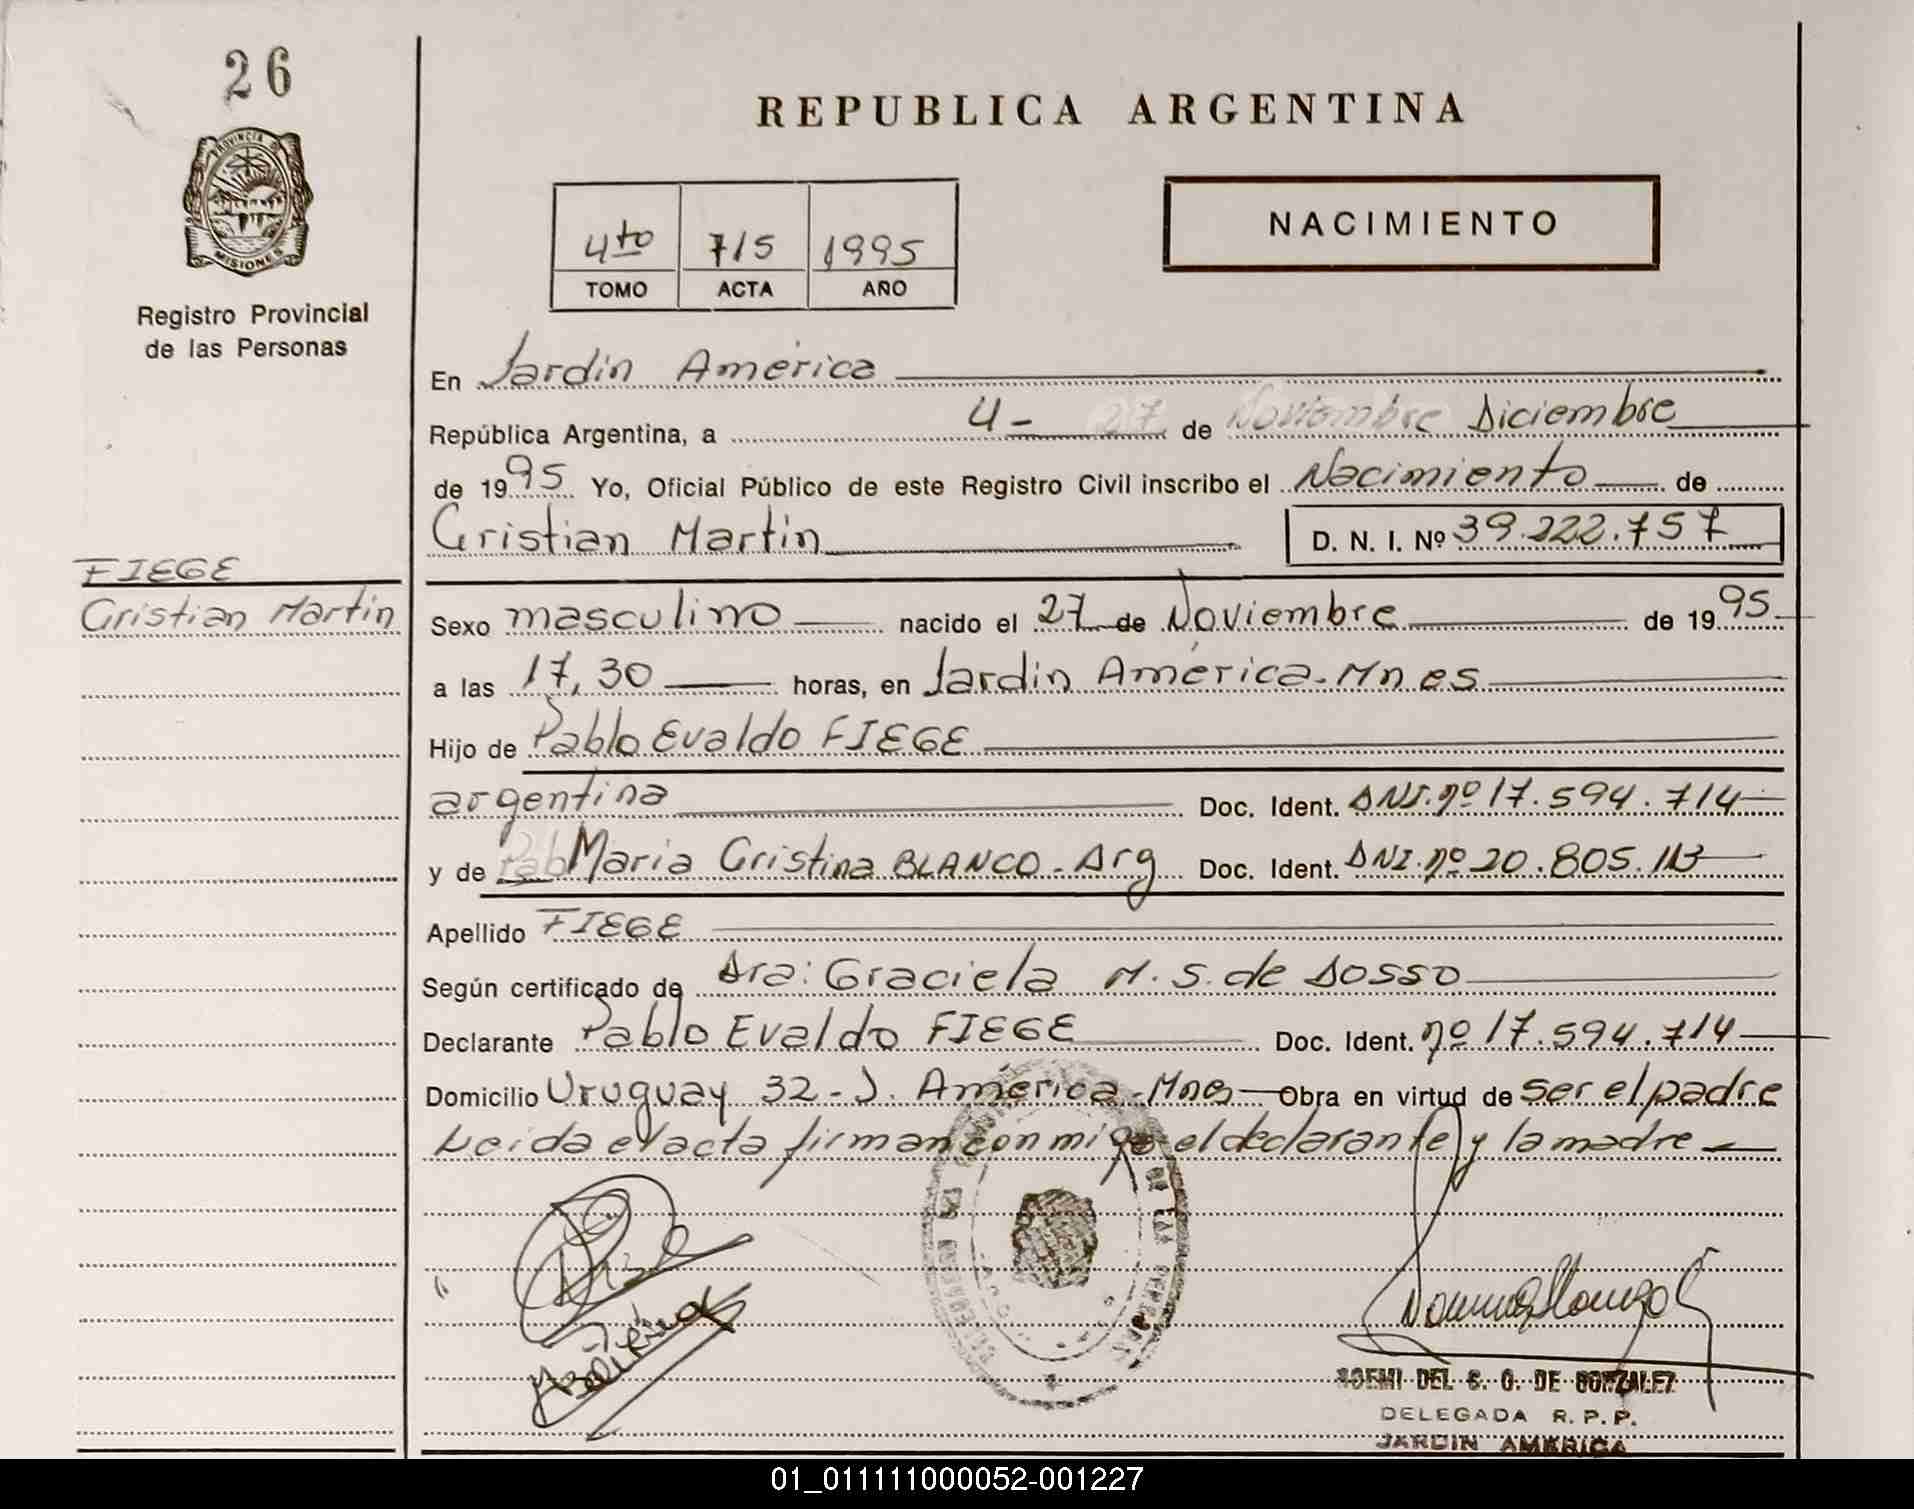 26
PROVINCIA DE
MISIONES
Registro Provincial
de las Personas
FIEGE
Cristian Martin
REPUBLICA ARGENTINA
4to 715 1995
TOMO ACTA AÑO
NACIMIENTO
En Jardin América
República Argentina, a 4- 27 de Noviembre Diciembre
de 1995 Yo, Oficial Público de este Registro Civil inscribo el Nacimiento de
Cristian Martin D. N. I. Nº 39.222.757
Sexo masculino nacido el 27 de Noviembre de 1995
a las 17,30 horas, en Jardin América-Mnes
Hijo de Pablo Evaldo FIEGE
argentina Doc. Ident. DNI.nº 17.594.714
y de Pab Maria Cristina BLANCO-Arg Doc. Ident. DNI.nº 20.805.113
Apellido FIEGE
Según certificado de Dra: Graciela M. S. de Dosso
Declarante Pablo Evaldo FIEGE Doc. Ident. nº 17.594.714
Domicilio Uruguay 32-J. América-Mnes Obra en virtud de ser el padre
Leida el acta firman conmigo el declarante y la madre
NOEMI DEL C. O. DE GONZALEZ
DELEGADA R. P. P.
JARDIN AMERICA
01_011111000052-001227